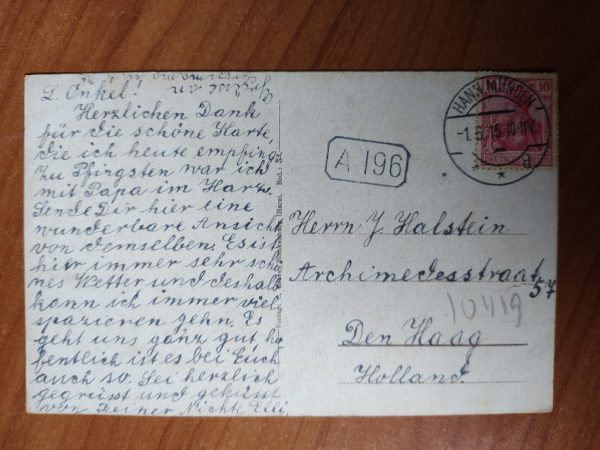 L. Onkel!
Herzlichen Dank
für die schöne Karte,
die ich heute empfing.
Zu Pfingsten war ich
mit Papa im Harz.
Sende Dir hier eine
wunderbare Ansicht
von demselben. Es ist
hier immer sehr schö-
nes Wetter und deshalb
kann ich immer viel
spazieren gehn. Es
geht uns ganz gut, ho
fentlich ist es bei Euch
auch so. Sei herzlich
gegrüsst und geküsst
von Deiner Nichte Elli.
Grüsse an
HANN. MÜNDEN
15.10-11V.
a
10
DEUTSCHES
A 196
Herrn J. Halstein
Archimedesstraat
57
10419
Den Haag
Holland.